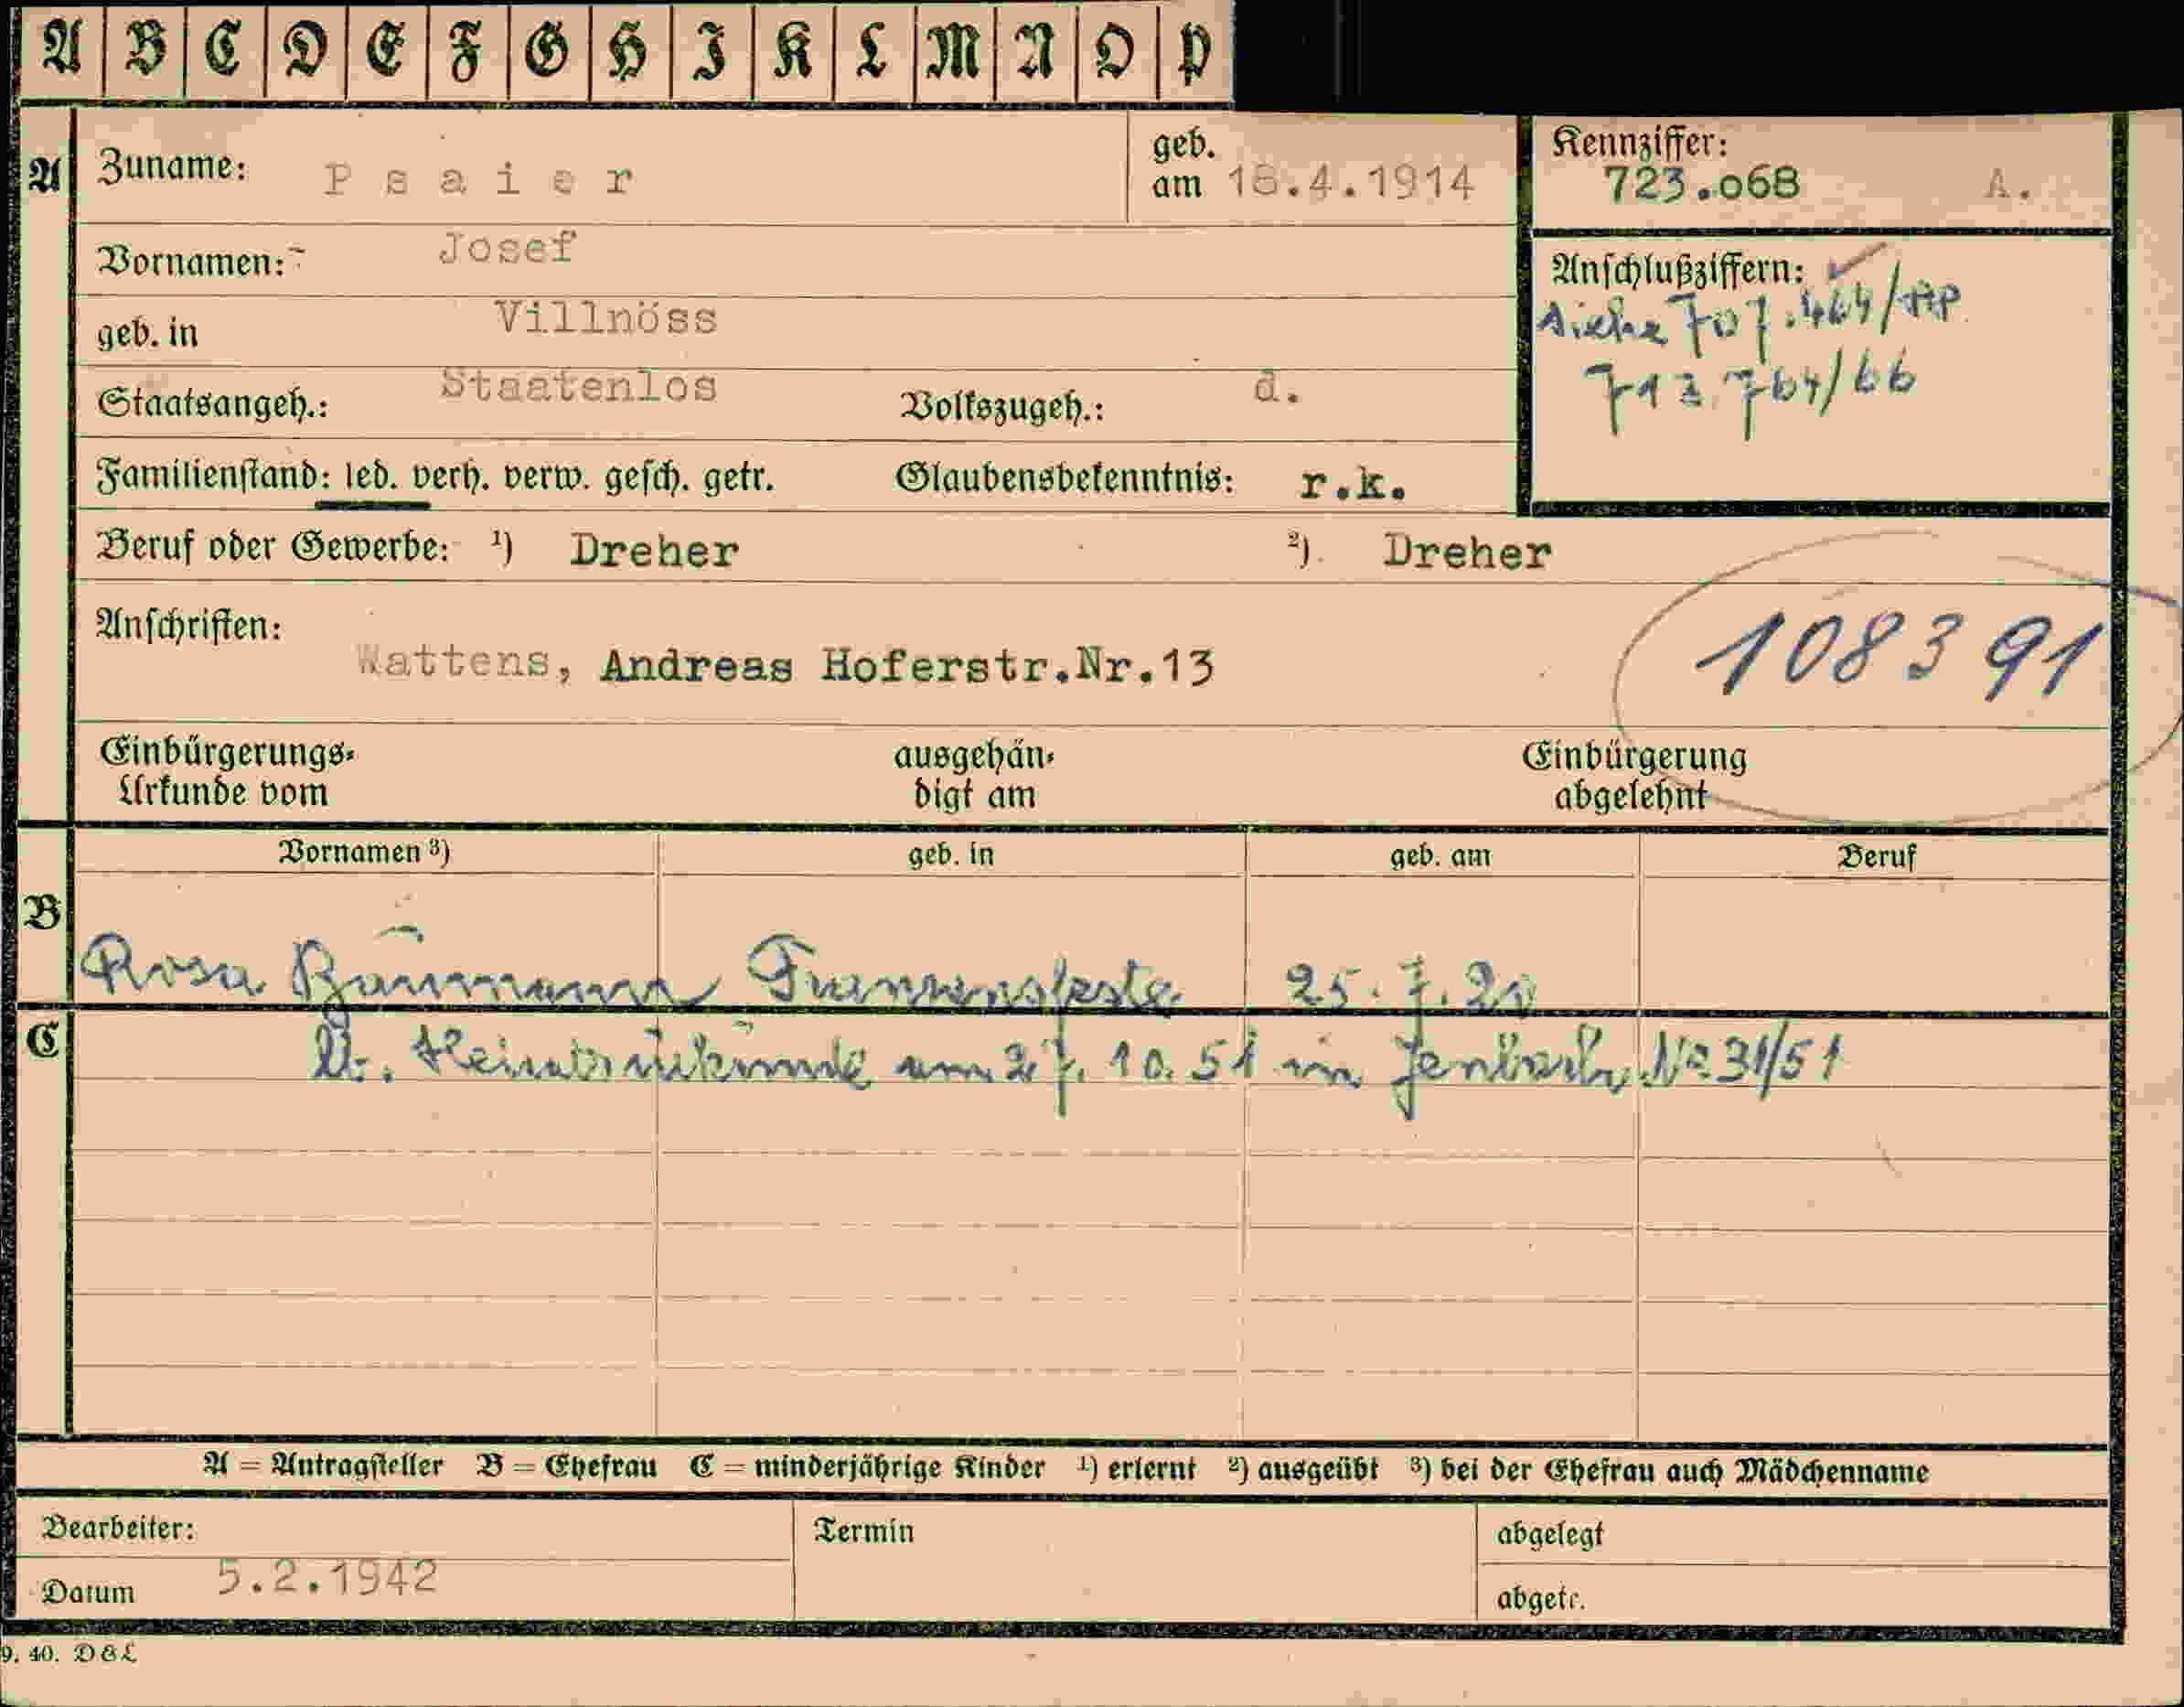 A B C D E F G H I K L M N O P
A Zuname: Psaier geb. am 18.4.1914 Kennziffer: 723.068 A.
Vornamen: Josef Anschlußziffern:
geb. in Villnöss siehe 707.464/
Staatsangeh.: Staatenlos Volkszugeh.: d. 713 764/66
Familienstand: led. verh. verw. gesch. getr. Glaubensbekenntnis: r.k.
Beruf oder Gewerbe: ¹) Dreher ²) Dreher
Anschriften: Wattens, Andreas Hoferstr.Nr.13 108391
Einbürgerungs- ausgehän- Einbürgerung
Urkunde vom digt am abgelehnt
Vornamen ³) geb. in geb. am Beruf
B Rosa Baumann Franzensfeste 25.7.20
C Lt. Heiratsurkunde am 27.10.51 in Jenbach No 31/51
A = Antragsteller B = Ehefrau C = minderjährige Kinder ¹) erlernt ²) ausgeübt ³) bei der Ehefrau auch Mädchenname
Bearbeiter: Termin abgelegt
Datum 5.2.1942 abgetr.
9. 40. D & L